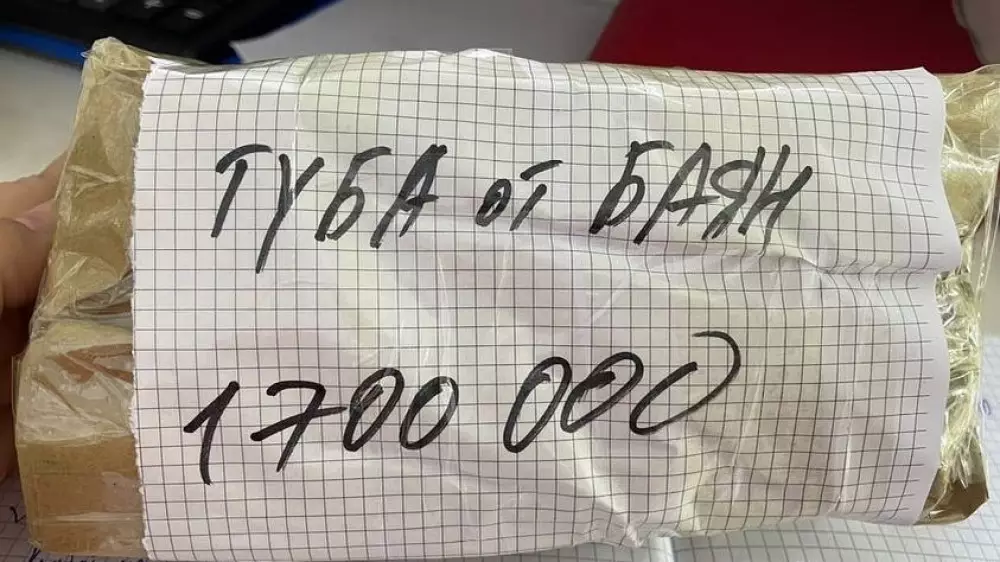 ТУБА от БАЯН
1700 000